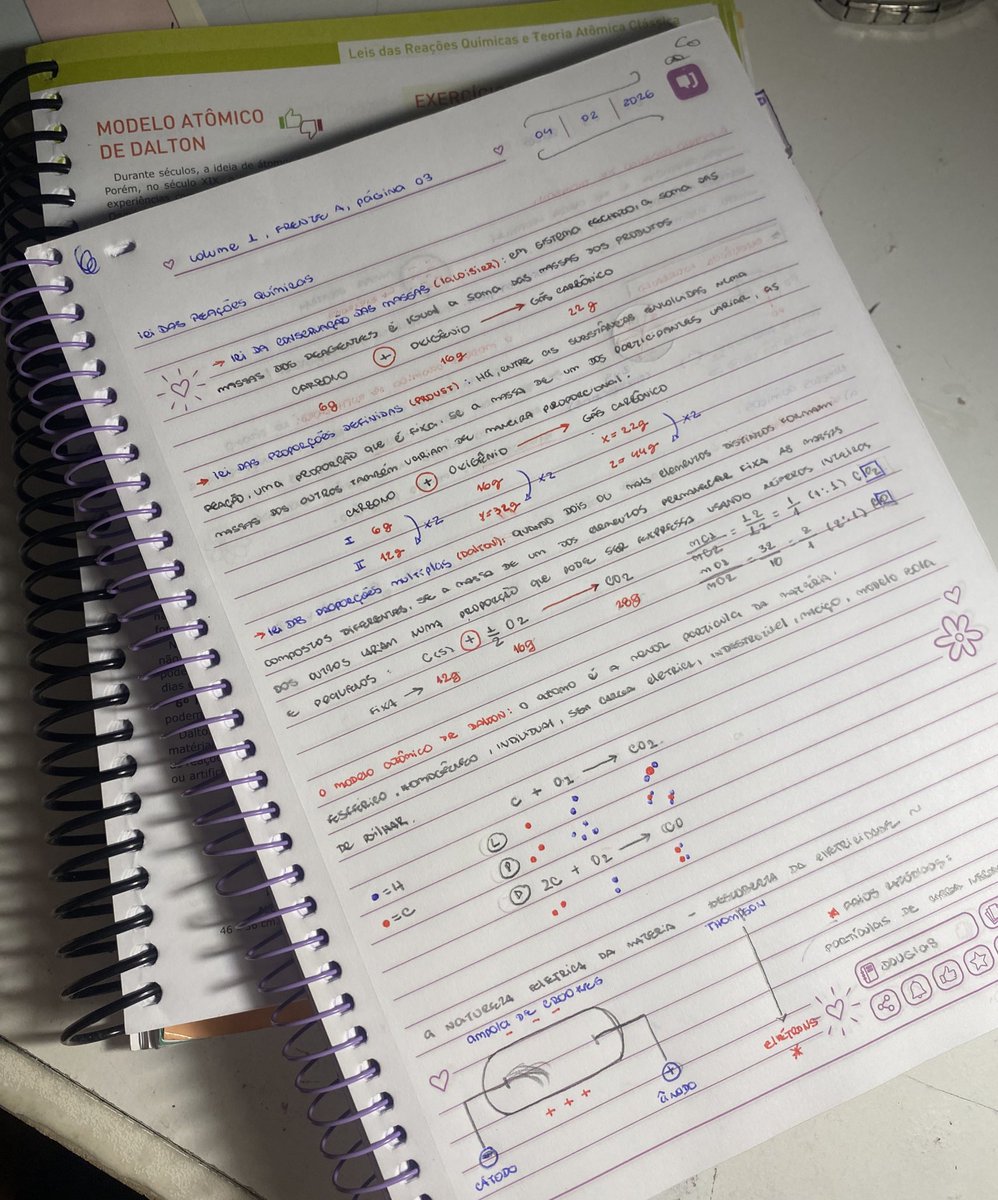 Leis das Reações Químicas e Teoria Atômica Clássica
MODELO ATÔMICO
DE DALTON
EXERCÍCI
Durante séculos, a ideia de átomo
Porém, no século XIX,
experiências
04 | 02 | 2026
VOLUME 1, FRENTE A, PÁGINA 03
LEI DAS REAÇÕES QUÍMICAS
→ LEI DA CONSERVAÇÃO DAS MASSAS (LAVOISIER): EM SISTEMA FECHADO, A SOMA DAS
MASSAS DOS REAGENTES É IGUAL A SOMA DAS MASSAS DOS PRODUTOS
CARBONO + OXIGÊNIO → GÁS CARBÔNICO
6g 16g 22g
→ LEI DAS PROPORÇÕES DEFINIDAS (PROUST): HÁ, ENTRE AS SUBSTÂNCIAS ENVOLVIDAS NUMA
REAÇÃO, UMA PROPORÇÃO QUE É FIXA. SE A MASSA DE UM DOS PARTICIPANTES VARIAR, AS
MASSAS DOS OUTROS TAMBÉM VARIAM DE MANEIRA PROPORCIONAL:
CARBONO + OXIGÊNIO → GÁS CARBÔNICO
I 6g 16g X = 22g
x2 x2 x2
II 12g Y = 32g Z = 44g
→ LEI DAS PROPORÇÕES MULTIPLAS (DALTON): QUANDO DOIS OU MAIS ELEMENTOS DISTINTOS FORMAM
COMPOSTOS DIFERENTES, SE A MASSA DE UM DOS ELEMENTOS PERMANECER FIXA AS MASSAS
DOS OUTROS VARIAM NUMA PROPORÇÃO QUE PODE SER EXPRESSA USANDO NÚMEROS INTEIROS
E PEQUENOS:
C(S) + 1/2 O2 → CO2
FIXA → 12g 16g 28g
mC1/mC2 = 12/12 = 1/1 (1:1)
mO1/mO2 = 32/16 = 2/1 (2:1)
O MODELO ATÔMICO DE DALTON: O ATOMO É A MENOR PARTICULA DA MATÉRIA.
ESFÉRICO, HOMOGÊNEO, INDIVIDUAL, SEM CARGA ELETRICA, INDESTRUTIVEL, MACIÇO, MODELO BOLA
DE BILHAR.
C + O2 → CO2
L
P
D 2C + O2 → CO
= H
= C
A NATUREZA ELETRICA DA MATERIA - DESCOBERTA DA ELETRICIDADE ~
THOMPSON
* RAIOS CATÓDICOS:
PARTÍCULAS DE CARGA
AMPOLA DE CROOKES
ELÉTRONS
*
- - -
+ + +
+
ÂNODO
-
CÁTODO
DOUGLAS
não
dias
podem
Dalto
matéria
ou artific
46